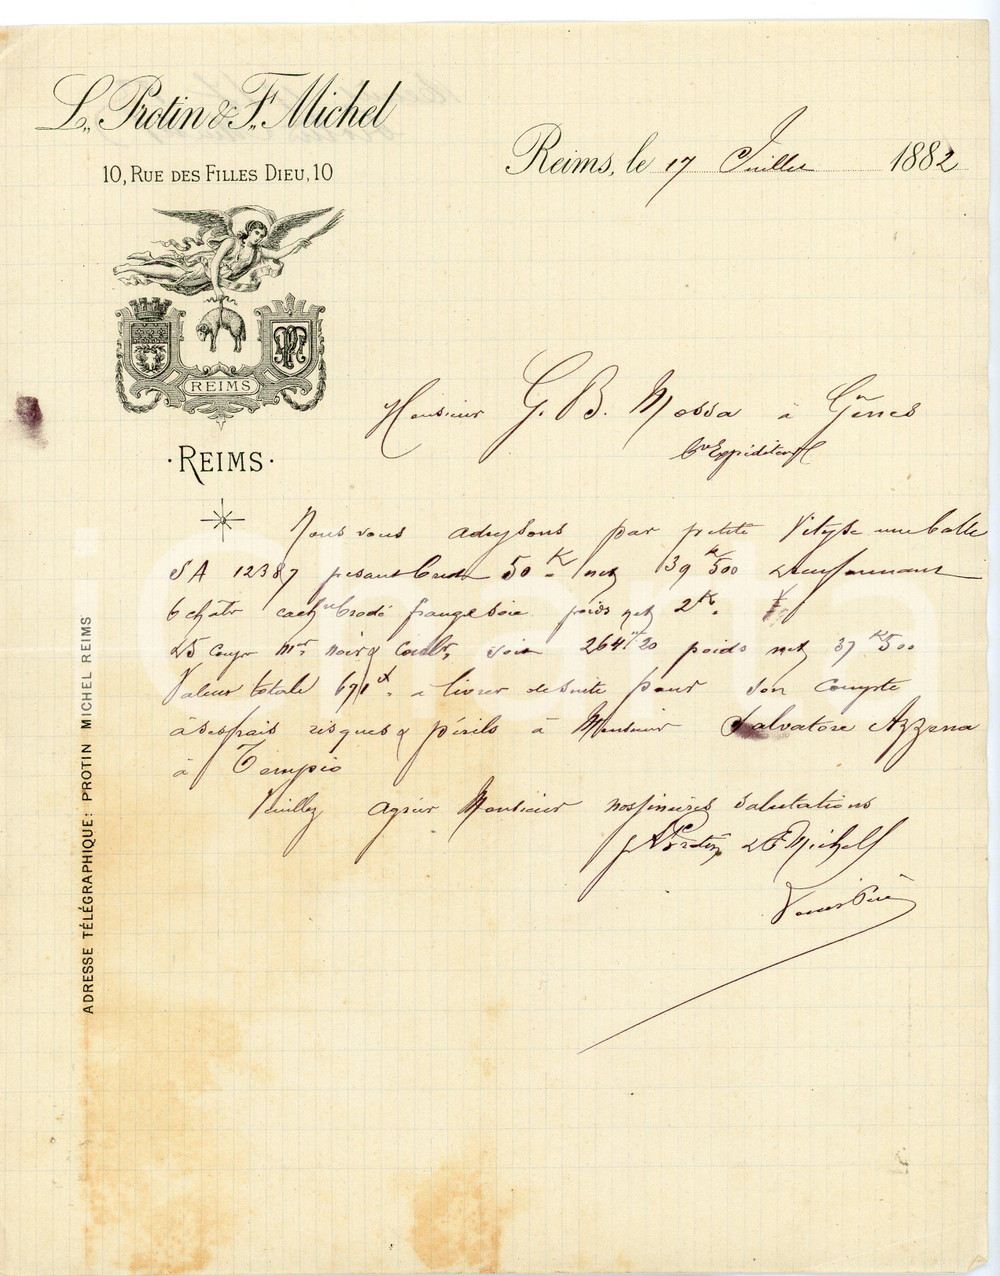 L. Protin & F. Michel
10, Rue des Filles Dieu, 10
Reims, le 17 Juillet 1882
REIMS
· REIMS ·
Monsieur G. B. Mossa à Gênes
Expéditeur
Nous vous adressons par petite Vitesse une balle
SA 12387 pesant brut 50 K net 39 K 500 renfermant
6 chât cach brodé frange soie poids net 2 K.
25 coup noir & coul soie 264 m 20 poids net 37 K 500
Valeur totale 671 à livrer de suite pour son compte
à ses frais risques & périls à Monsieur Salvatore Azzena
à Tempio
Veuillez agréer Monsieur nos sincères salutations
Protin & F Michel
ADRESSE TÉLÉGRAPHIQUE: PROTIN MICHEL REIMS